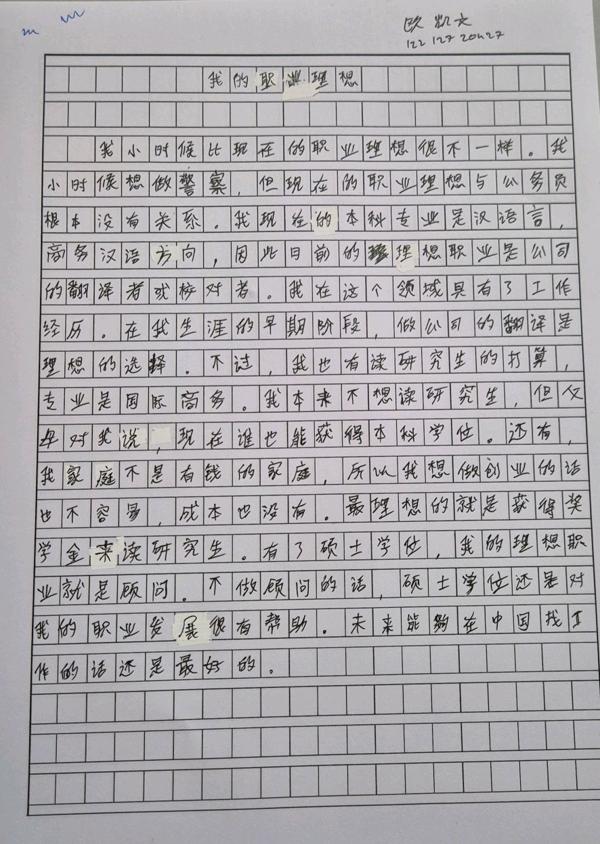 欧凯文
12212720427
我的职业理想
我小时候比现在的职业理想很不一样。我
小时候想做警察，但现在的职业理想与公务员
根本没有关系。我现在的本科专业是汉语言，
商务汉语方向，因此目前的理想职业是公司
的翻译者或校对者。我在这个领域具有了工作
经历。在我生涯的早期阶段，做公司的翻译是
理想的选择。不过，我也有读研究生的打算，
专业是国际商务。我本来不想读研究生，但父
母对我说，现在谁也能获得本科学位。还有，
我家庭不是有钱的家庭，所以我想做创业的话
也不容易，成本也没有。最理想的就是获得奖
学金来读研究生。有了硕士学位，我的理想职
业就是顾问。不做顾问的话，硕士学位还是对
我的职业发展很有帮助。未来能够在中国找工
作的话还是最好的。